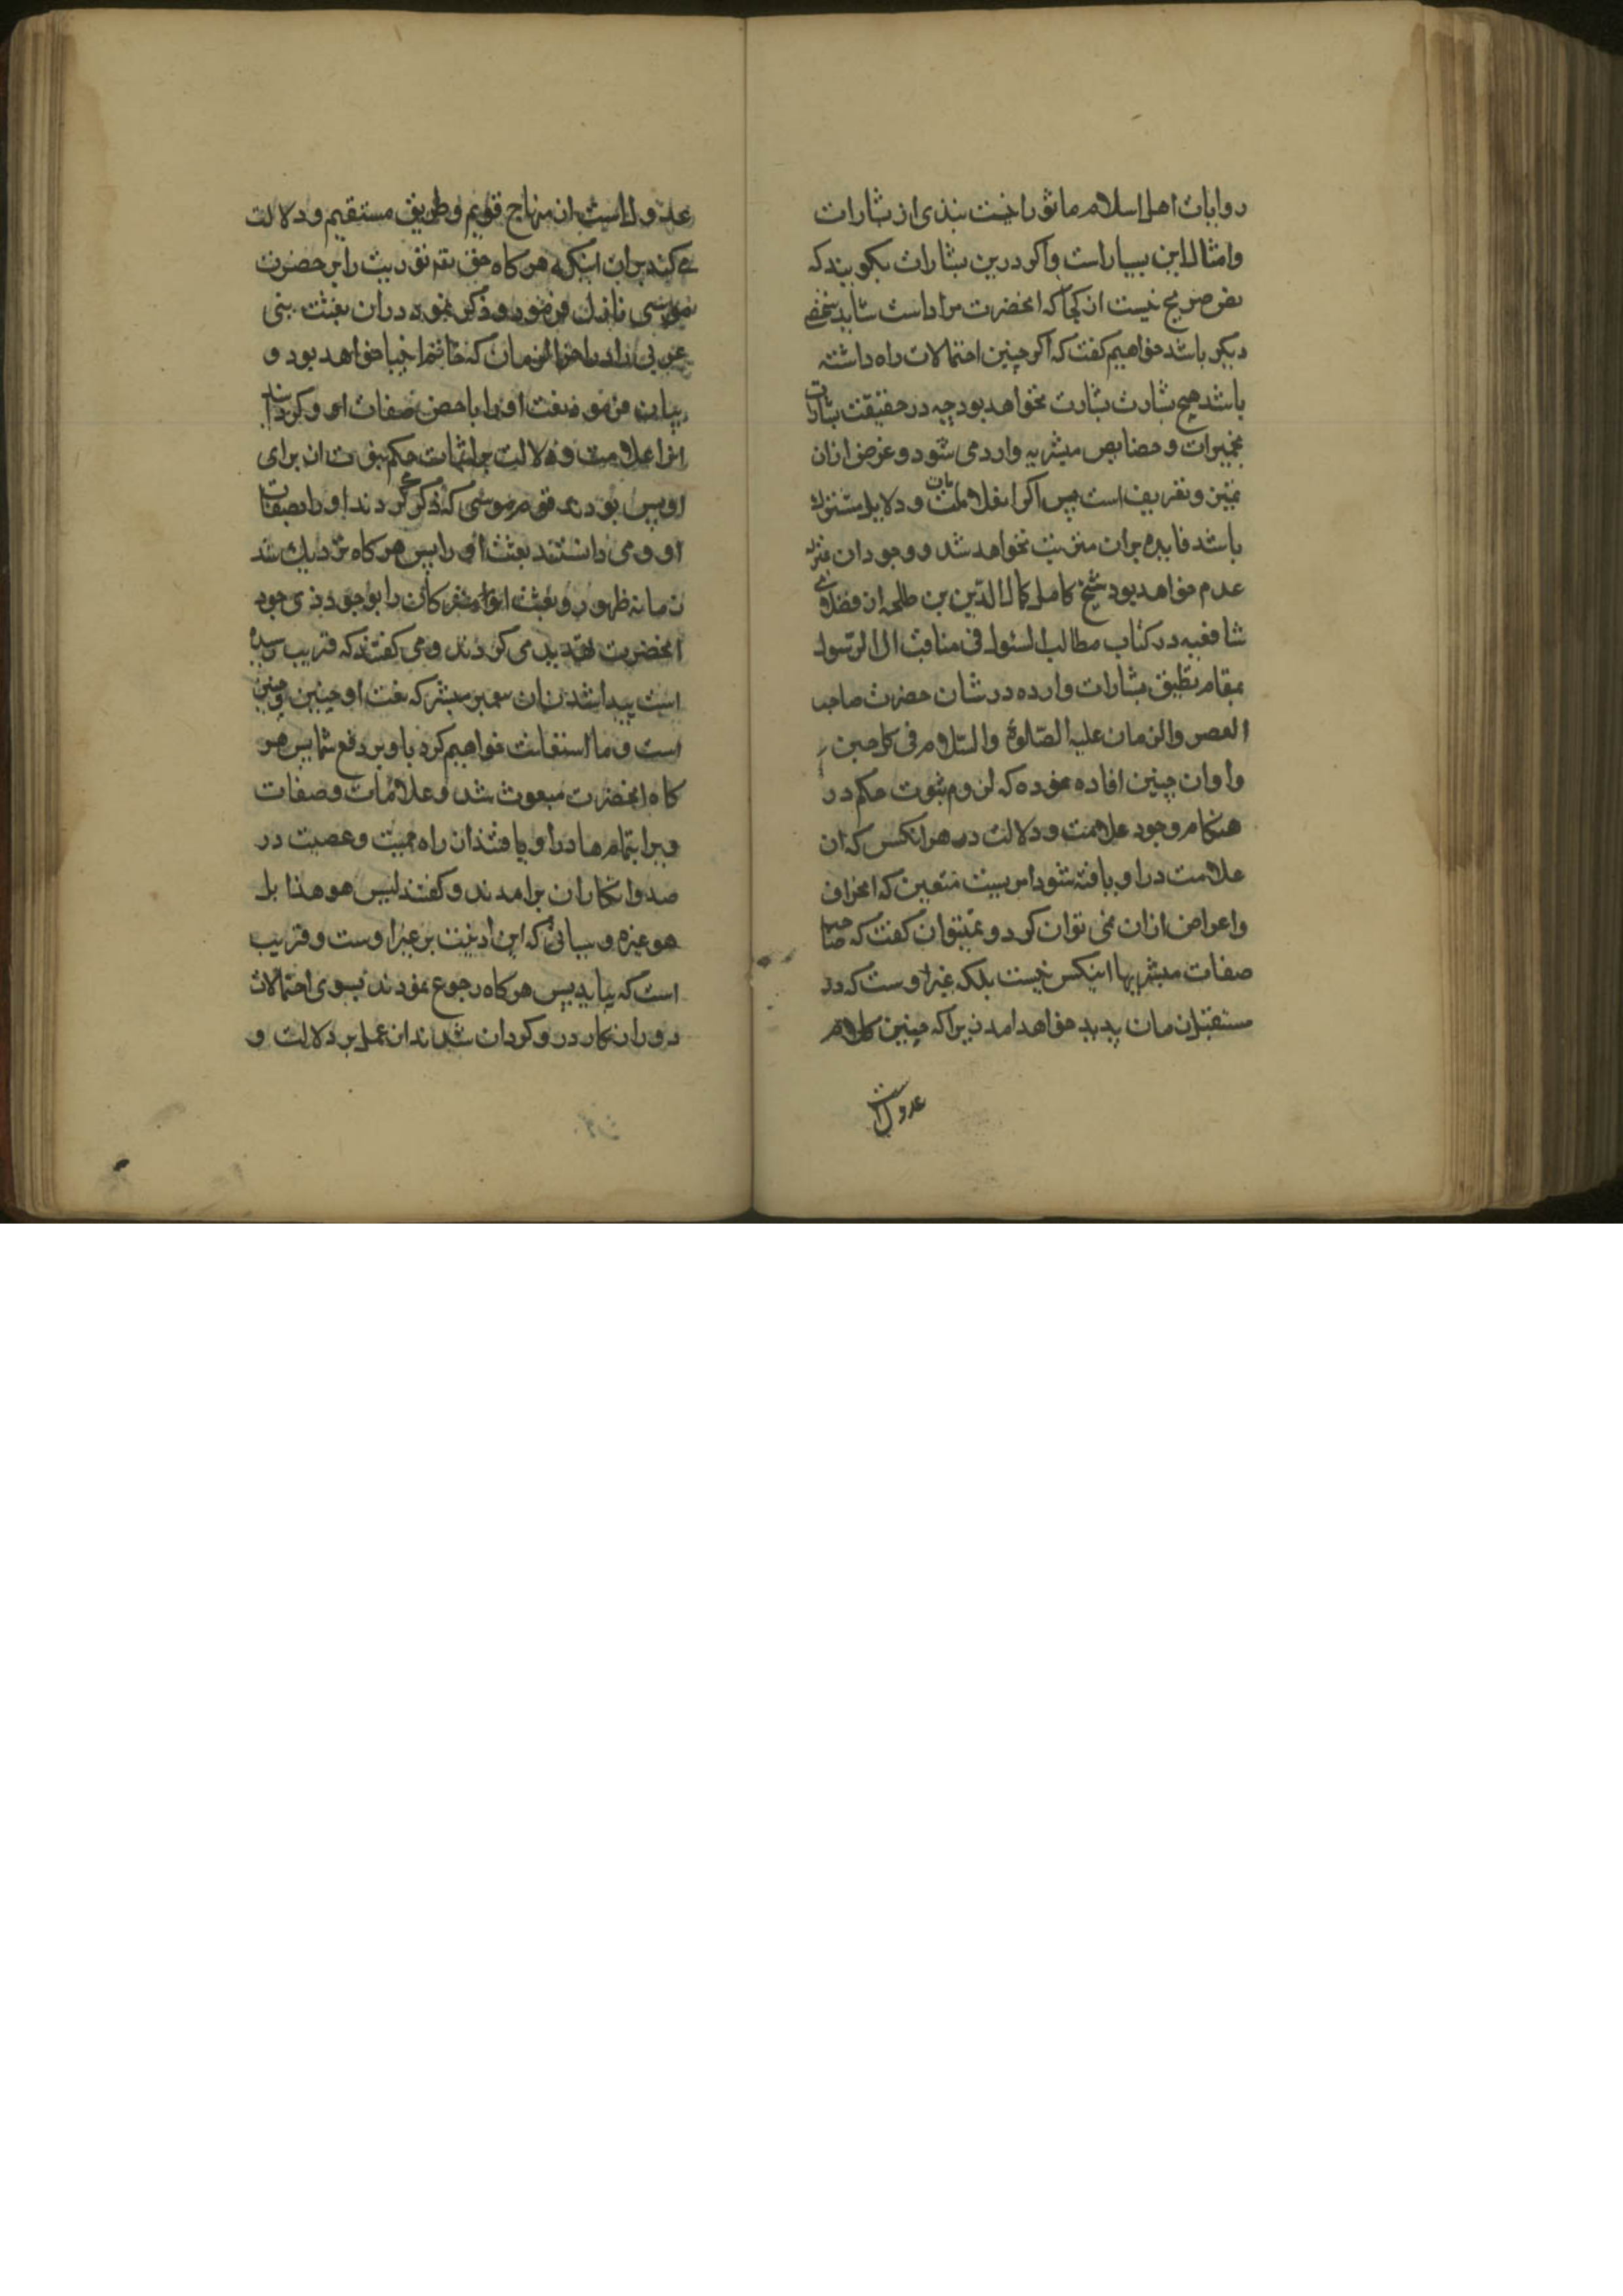 روایات اهل اسلام ماثور است بندی از بشارات
وامثال این بسیار است واکر درین بشارات بکویند که
نص صریح نیست از کجا که انحضرت مراد است شاید شخصی
دیکر باشد خواهیم کفت که اکر چنین احتمالات راه داشته
باشد هیچ بشارت بشارت نخواهد بود چه در حقیقت بشارات
بممیزات و خصایص مبشر به وارد می شود و غرض ازان
تعیین و تعریف است پس اکر علامات و دلایل مشترک
باشد فایده بران مترتب نخواهد شد و وجود ان بمنزله
عدم خواهد بود شیخ کامل کمال الدین بن طلحه از فضلای
شافعیه در کتاب مطالب السئول فی مناقب ال الرسول
بمقام تطبیق بشارات وارده در شان حضرت صاحب
العصر والزمان علیه الصلوة والسلام فی کل حین
واوان چنین افاده نموده که لزوم ثبوت حکم در
هنکام وجود علامت و دلالت در هر انکس که ان
علامت در او یافته شود امریست متعین که انحراف
واعراض ازان نمی توان کرد و نمیتوان کفت که صاحب
صفات مبشر بها اینکس نیست بلکه غیر اوست که در
مستقبل زمان پدید خواهد امد زیرا که چنین کلام
عدول است
عدول است از منهاج قویم و طریق مستقیم و دلالت
می کند بران اینکه هر کاه حق تعم توریت را بر حضرت
موسی نازل فرمود و ذکر نمود دران بعثت نبی
عربی را در اخر الزمان که خاتم انبیا خواهد بود و
بیان فرمود نعت او را باحصن صفات او و کردانید
انرا علامت و دلالت بر اثبات حکم نبوت ان برای
او پس بودند قوم موسی که ذکر می کردند او را بصفات
او و می دانستند بعثت او را پس هر کاه نزدیک شد
زمانه ظهور و بعثت او مشرکان را بوجود ذی جود
انحضرت تهدید می کردند و می کفتند که قریب رسیده
است پیدا شدن ان پیمبر مبشر که نعت او چنین و چنین
است و ما استعانت خواهیم کرد باو بر دفع شما پس هر
کاه انحضرت مبعوث شد و علامات و صفات
وبرا بتمامها در او یافتند از راه حمیت و عصبیت در
صدد انکار ان برامدند و کفتند لیس هو هذا بل
هو غیره و سیاتی که این نعت بر غیر اوست و قریب
است که بیاید پس هر کاه رجوع نمودند بسوی احتمالات
دوران کار و رو کردان شدند از عمل بر دلالت و